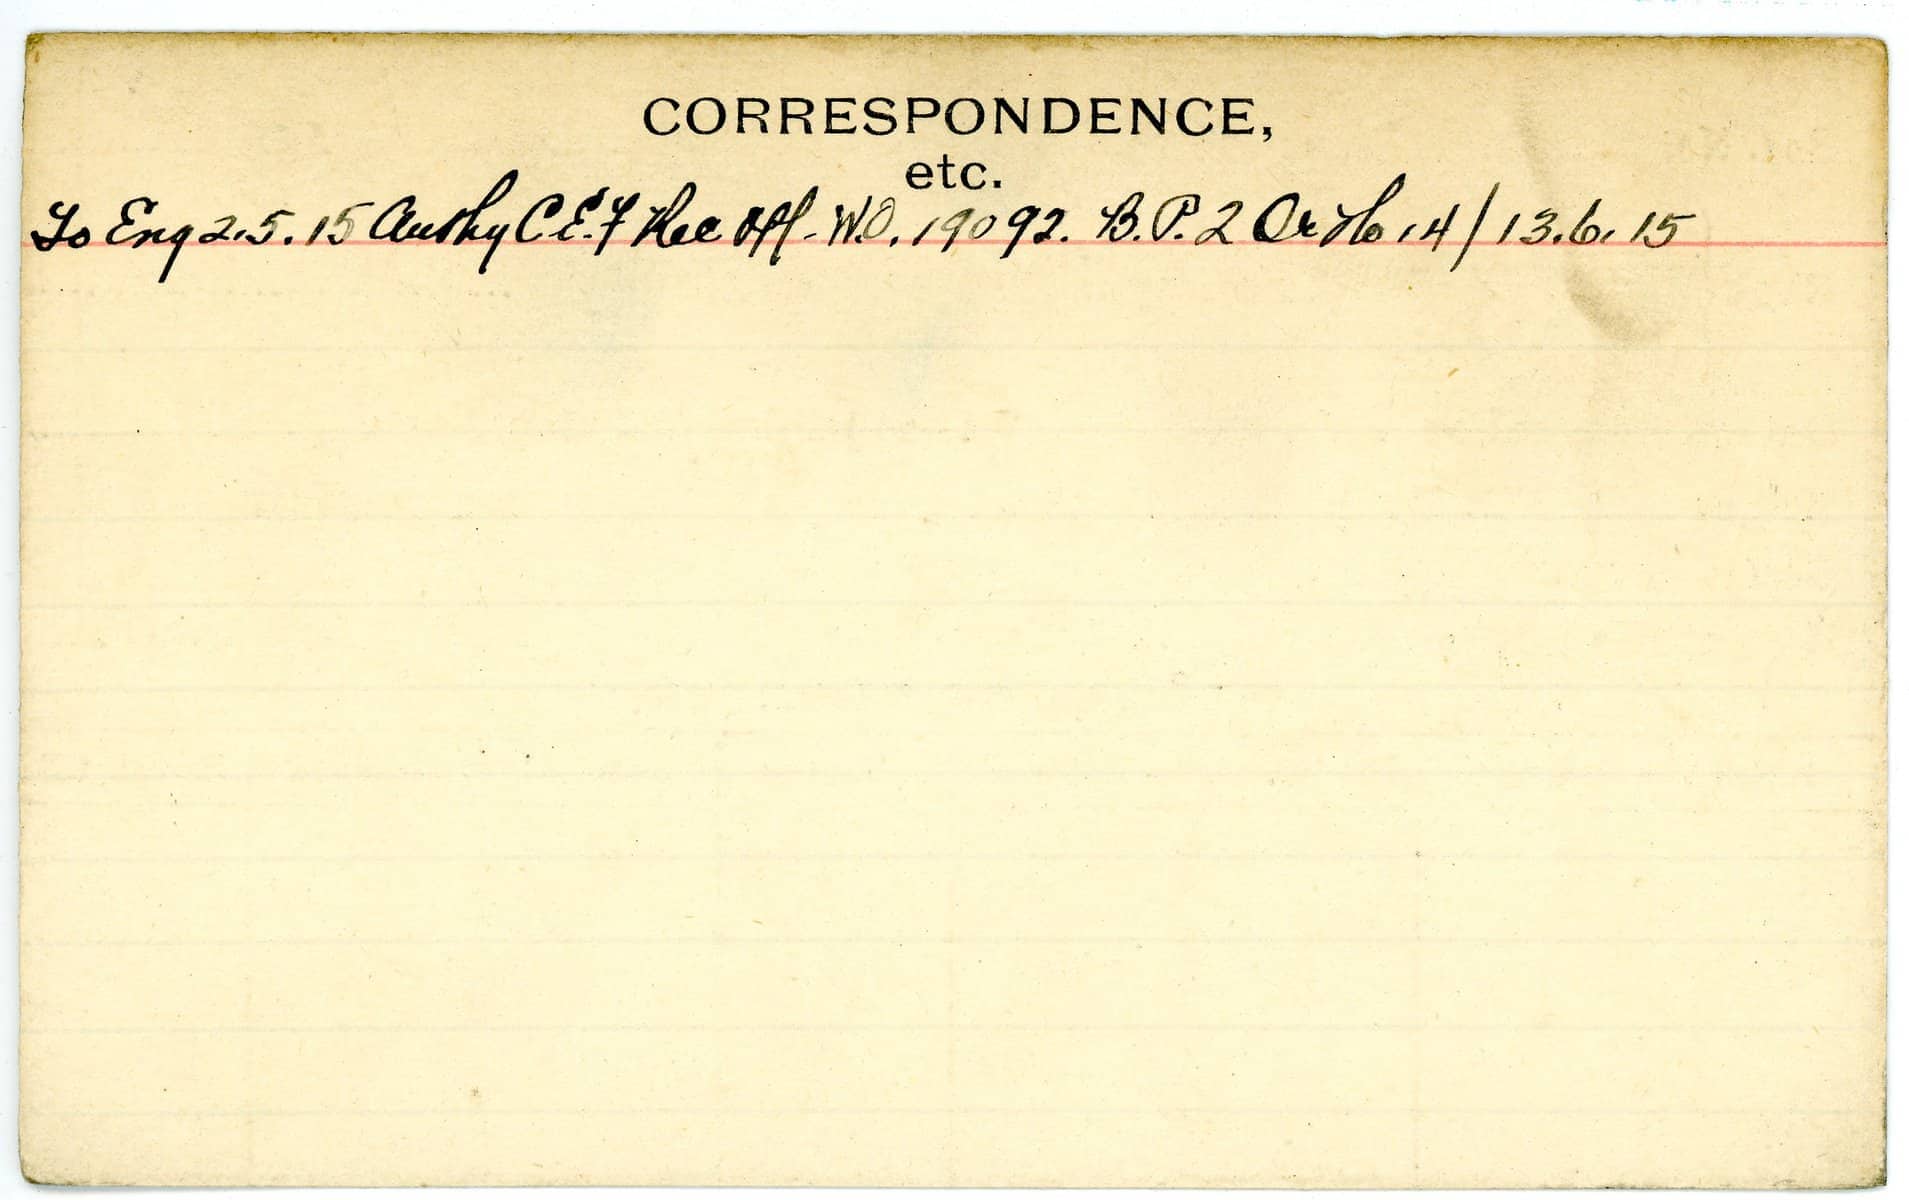 CORRESPONDENCE,
etc.
To Eng 2.5.15 Authy C.E.F Rec Off. W.O. 19092. B.P. 2 Or No 14/13.6.15